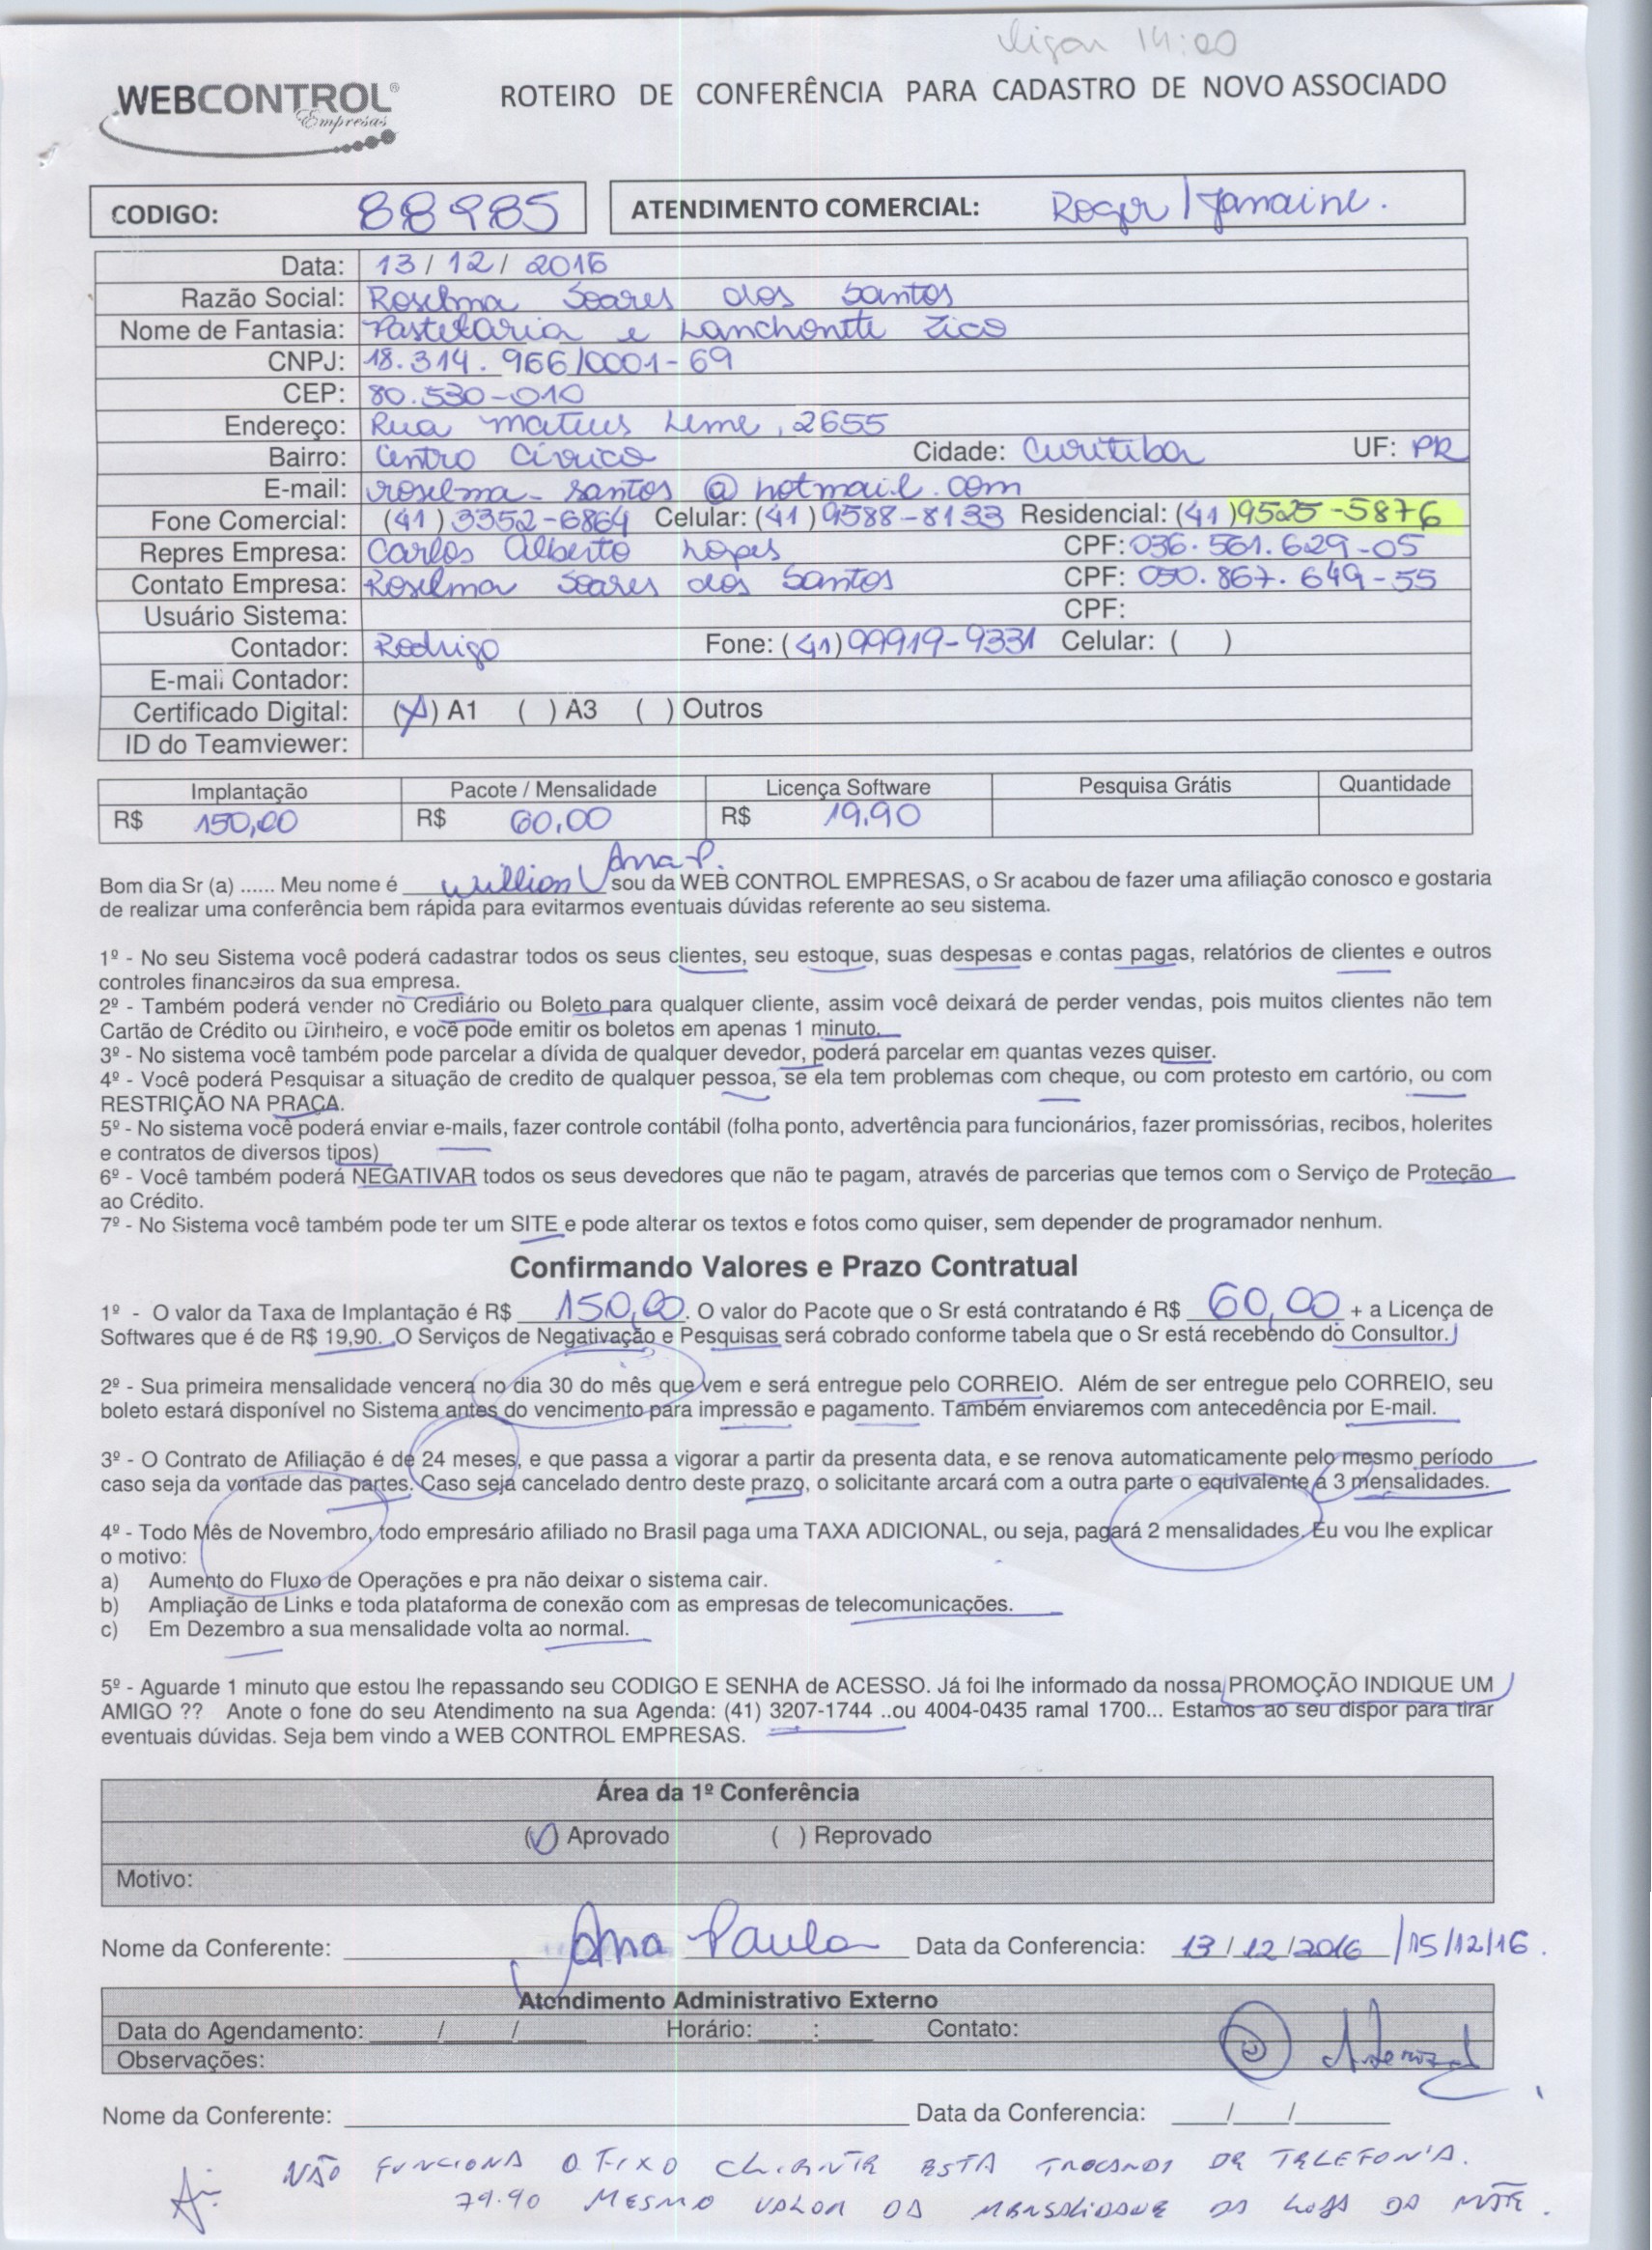 ligar 14:00
WEBCONTROL®
Empresas
ROTEIRO DE CONFERÊNCIA PARA CADASTRO DE NOVO ASSOCIADO
CODIGO: 88985
ATENDIMENTO COMERCIAL: Roger / Janaine.
Data: 13 / 12 / 2016
Razão Social: Roselma Soares dos Santos
Nome de Fantasia: Pastelaria e Lanchonete Zico
CNPJ: 18.314.966/0001-69
CEP: 80.530-010
Endereço: Rua Mateus Leme, 2655
Bairro: Centro Cívico Cidade: Curitiba UF: PR
E-mail: roselma-santos@hotmail.com
Fone Comercial: (41) 3352-6864 Celular: (41) 9588-8133 Residencial: (41) 9525-5876
Repres Empresa: Carlos Alberto Lopes CPF: 036.561.629-05
Contato Empresa: Roselma Soares dos Santos CPF: 050.867.649-55
Usuário Sistema: CPF:
Contador: Rodrigo Fone: (41) 99919-9331 Celular: ( )
E-mail Contador:
Certificado Digital: (X) A1 ( ) A3 ( ) Outros
ID do Teamviewer:
Implantação Pacote / Mensalidade Licença Software Pesquisa Grátis Quantidade
R$ 150,00 R$ 60,00 R$ 19,90
Bom dia Sr (a) ...... Meu nome é Willion / Ana P. sou da WEB CONTROL EMPRESAS, o Sr acabou de fazer uma afiliação conosco e gostaria
de realizar uma conferência bem rápida para evitarmos eventuais dúvidas referente ao seu sistema.
1º - No seu Sistema você poderá cadastrar todos os seus clientes, seu estoque, suas despesas e contas pagas, relatórios de clientes e outros
controles financeiros da sua empresa.
2º - Também poderá vender no Crediário ou Boleto para qualquer cliente, assim você deixará de perder vendas, pois muitos clientes não tem
Cartão de Crédito ou Dinheiro, e você pode emitir os boletos em apenas 1 minuto.
3º - No sistema você também pode parcelar a dívida de qualquer devedor, poderá parcelar em quantas vezes quiser.
4º - Você poderá Pesquisar a situação de credito de qualquer pessoa, se ela tem problemas com cheque, ou com protesto em cartório, ou com
RESTRIÇÃO NA PRAÇA.
5º - No sistema você poderá enviar e-mails, fazer controle contábil (folha ponto, advertência para funcionários, fazer promissórias, recibos, holerites
e contratos de diversos tipos)
6º - Você também poderá NEGATIVAR todos os seus devedores que não te pagam, através de parcerias que temos com o Serviço de Proteção
ao Crédito.
7º - No Sistema você também pode ter um SITE e pode alterar os textos e fotos como quiser, sem depender de programador nenhum.
Confirmando Valores e Prazo Contratual
1º - O valor da Taxa de Implantação é R$ 150,00. O valor do Pacote que o Sr está contratando é R$ 60,00 + a Licença de
Softwares que é de R$ 19,90. O Serviços de Negativação e Pesquisas será cobrado conforme tabela que o Sr está recebendo do Consultor.
2º - Sua primeira mensalidade vencerá no dia 30 do mês que vem e será entregue pelo CORREIO. Além de ser entregue pelo CORREIO, seu
boleto estará disponível no Sistema antes do vencimento para impressão e pagamento. Também enviaremos com antecedência por E-mail.
3º - O Contrato de Afiliação é de 24 meses, e que passa a vigorar a partir da presenta data, e se renova automaticamente pelo mesmo período
caso seja da vontade das partes. Caso seja cancelado dentro deste prazo, o solicitante arcará com a outra parte o equivalente á 3 mensalidades.
4º - Todo Mês de Novembro, todo empresário afiliado no Brasil paga uma TAXA ADICIONAL, ou seja, pagará 2 mensalidades. Eu vou lhe explicar
o motivo:
a) Aumento do Fluxo de Operações e pra não deixar o sistema cair.
b) Ampliação de Links e toda plataforma de conexão com as empresas de telecomunicações.
c) Em Dezembro a sua mensalidade volta ao normal.
5º - Aguarde 1 minuto que estou lhe repassando seu CODIGO E SENHA de ACESSO. Já foi lhe informado da nossa PROMOÇÃO INDIQUE UM
AMIGO ?? Anote o fone do seu Atendimento na sua Agenda: (41) 3207-1744 ..ou 4004-0435 ramal 1700... Estamos ao seu dispor para tirar
eventuais dúvidas. Seja bem vindo a WEB CONTROL EMPRESAS.
Área da 1º Conferência
(✓) Aprovado ( ) Reprovado
Motivo:
Nome da Conferente: Ana Paula Data da Conferencia: 13 / 12 / 2016 / 15/12/16.
Atendimento Administrativo Externo
Data do Agendamento: ____/____/____ Horário: ____:____ Contato:
Observações:
Nome da Conferente: Data da Conferencia: ___/___/___
NÃO FUNCIONA O FIXO CLIENTE ESTA TROCANDO DE TELEFONIA.
79.90 MESMO VALOR DA MENSALIDADE DA LOJA DA MÃE.